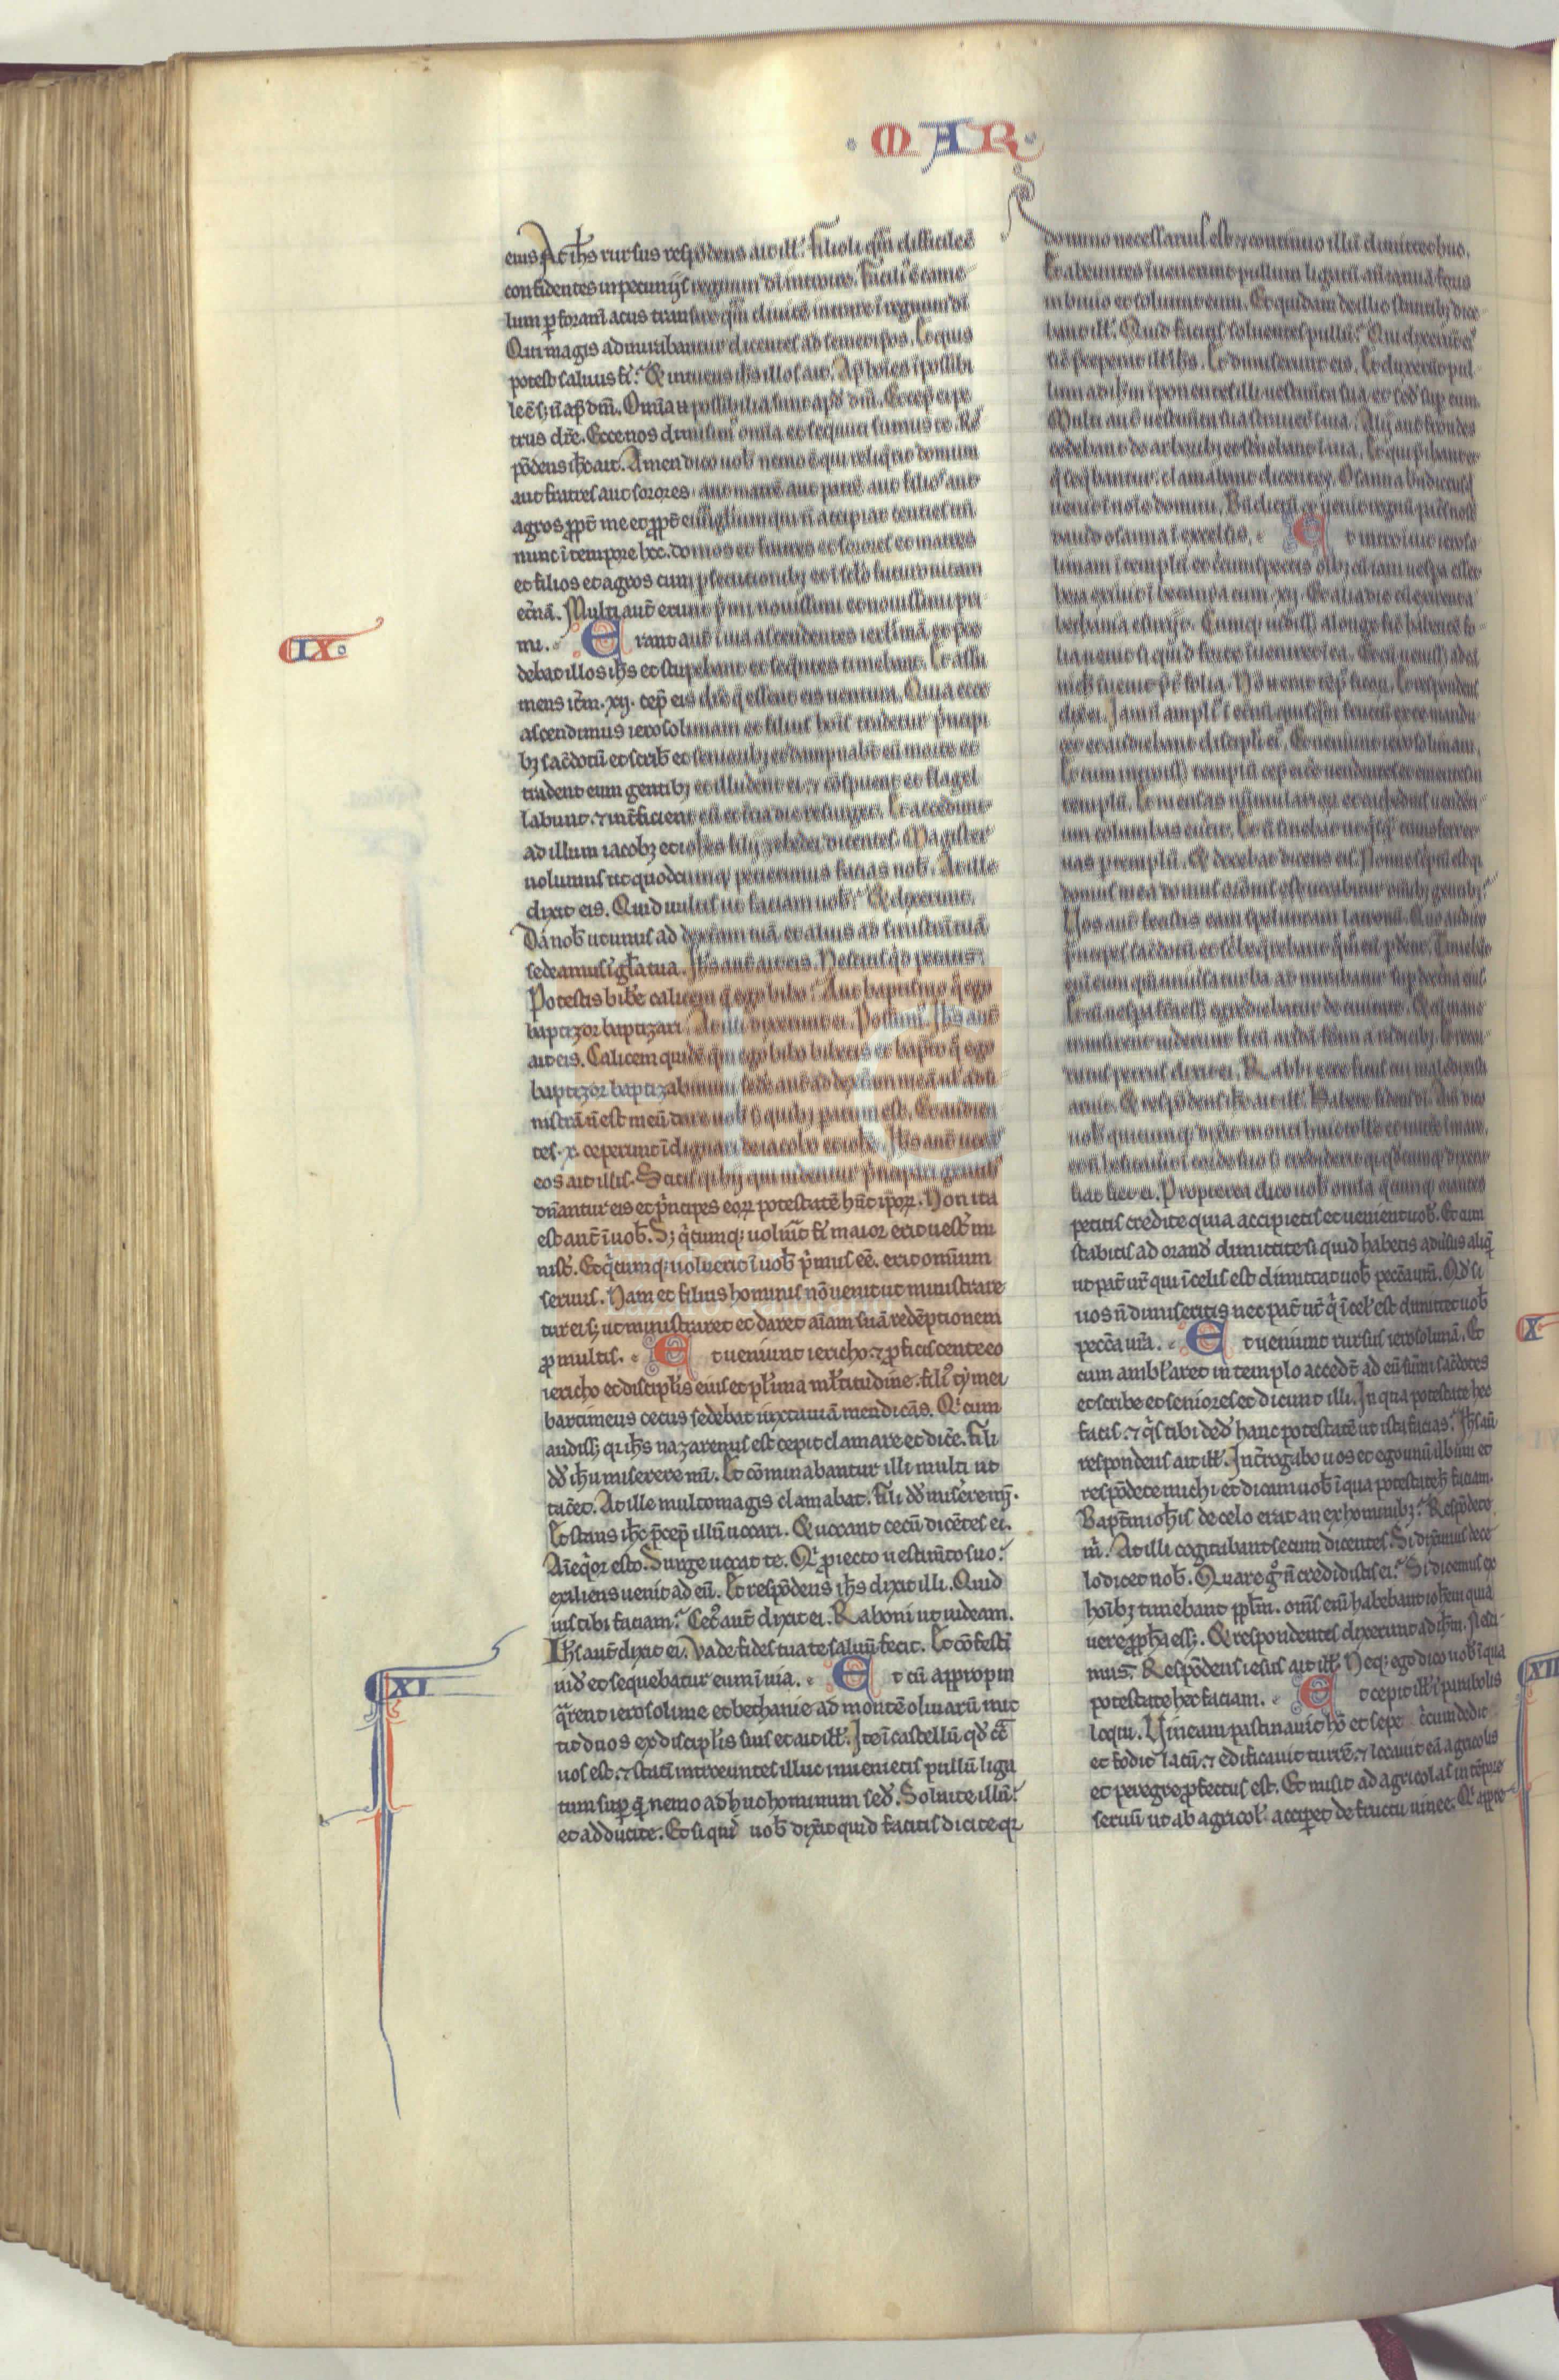 MAR
eius At ih̄s rursus respōdens ait ill̄. Filioli qm̄ difficile ē
confidentes in pecuniis regnum dī introire. Facili ē came
lum p foram̄ acus transire qm̄ diuitē intrare ī regnum dī
Qui magis admirabantur dicentes ad semetipsos. Et quis
potest saluus fi. Et intuens ih̄s illos ait. Ap̄ hoīes īpossibi
le ē; n̄ ap̄ dm̄. Omīa n̄ possibilia sunt apd̄ dm̄. Et cep ei pe
trus dr̄e. Ecce nos dimisim omīa et secuti sumus te. Rē
pōdens ih̄c ait. Amen dico uob̄ nemo ē qui reliq̄rit domum
aut fratres aut sorores aut matrē aut patrē aut filios aut
agros ꝓpt̄ me et ꝓpt̄ euāglium qui n̄ accipiat centies tn̄
nunc ī tempore hoc. domos et fratres et sorores et matres
et filios et agros cum psecutionibꝫ et ī sclō futuro uitam
et̄nā. Multi aut̄ erunt p̄mi nouissimi et nouissimi pri
mi. Erant aut̄ ī uia ascendentes ierlimā et pre
IX
debat illos ih̄s et stupebant et seq̄ntes timebant. Et assu
mens itm̄ .xij. cep̄ eis dr̄e q̄ essent eis uentura. Quia ecce
ascendimus ierosolimam et filius hoīs tradetur p̄ncipi
bꝫ sac̄dotū et scrib̄ et senioribꝫ et dampnabt̄ eū morte et
tradent eum gentibꝫ et illudent ei. ⁊ cōspuent et flagel
labunt. ⁊ int̄ficient eū et t̄cia die resurget. Et accedunt
ad illum iacobꝫ et ioh̄es filij zebedei dicentes. Magister
uolumus ut quodcumqꝫ petierimus facias nob̄. At ille
dixit eis. Quid uultis ut faciam uob̄. Et dixerunt.
Da nob̄ ut unus ad dextram tuā et alius ad sinistrā tuā
sedeamus ī gl̄a tua. Ih̄s aut̄ ait eis. Nescitis q̄d petatis.
Potestis bibe calicem q̄ ego bibo. Aut baptismo q̄ ego
baptizor baptizari. At illi dixerunt ei. Possum̄. Ih̄s aut̄
ait eis. Calicem quidē qm̄ ego bibo bibetis et bapt̄o q̄ ego
baptizor baptizabimini. sede aut̄ ad dextram meā ul̄ ad si
nistrā n̄ est meū dare uob̄ s; quibꝫ paratum est. Et audien
tes .x. ceperunt īdignari de iacobo et ioh̄e. Ih̄s aut̄ uocās
eos ait illis. Scitis qꝛ hij qui uidentur p̄ncipari gentibꝫ
dn̄antur eis et p̄ncipes eoꝝ potestatē hn̄t ip̄oꝝ. Non ita
est aut̄ ī uob̄. S; q̄cumqꝫ uolūit fi maior erit uest̄ mi
nist̄. Et q̄cumqꝫ uoluerit ī uob̄ p̄mus eē. erit omnium
seruus. Nam et filius hominis nō uenit ut ministrare
tur ei s; ut ministraret et daret aīam suā redēptionem
ꝓ multis. Et ueniunt iericho. ⁊ ꝓficiscente eo
iericho et discipl̄is eius et pl̄ima ml̄titudine. fili tymei
bartimeus cecus sedebat iuxta uiā mendicās. Qi cum
audiss; qꝛ ih̄s nazarenus est cepit clamare et dicē. Fili
dd̄ ih̄u miserere mī. Et cōminabantur illi multi ut
tac̄et. At ille multo magis clamabat. Fili dd̄ miserere mī.
Et stans ih̄c p̄cep̄ illū uocari. Et uocant cecū dicētes ei.
Aīeq̄or esto. Surge uocat te. Qi ꝓiecto uestim̄to suo.
exiliens uenit ad eū. Et respōdens ih̄s dixit illi. Quid
uis tibi faciam. Cec̄ aut̄ dixit ei. Raboni ut uideam.
Ih̄s aut̄ dixit ei. Vade fides tua te saluū fecit. Et cōfesti
uid̄ et sequebatur eum ī uia. Et cū appropin
XI
q̄rent ierosolime et bethanie ad montē oliuarū mit
tit duos ex discipl̄is suis et ait ill̄. Ite ī castellū qd̄ cōt̄
uos est. ⁊ statī introeuntes illuc inuenietis pullū liga
tum sup q̄ nemo adhuc hominum sed̄. Soluite illū.
et adducite. Et si quis uob̄ dixit̄ quid facitis dicite qꝛ
domino necessarius est. ⁊ continuo illū dimittet huc.
Et abeuntes īuenerunt pullum ligatū an̄ ianuā foris
in biuio et soluunt eum. Et quidam de illic stantibꝫ dice
bant ill̄. Quid facitis soluentes pullū. Qui dixerūt ei
sic̄ p̄ceperat illis ih̄s. Et dimiserunt eis. Et duxerūt pul
lum ad ih̄m īponentes illi uestim̄ta sua et sed̄ sup eum.
Multi aut̄ uestim̄ta sua strauer̄t ī uia. Alij aut̄ frondes
cedebant de arboribꝫ et st̄nebant ī uia. Et qui p̄ibant et
q̄ seq̄bantur. clamabant dicentes. Osanna bn̄dictus q̄
uenit ī noīe domini. Bn̄dictū qd̄ uenit regnū pat̄s nost̄
dauid osanna ī excelsis. Et introiuit ieroso
limam ī templū et c̄cumspectis oībꝫ cū iam uespa esset
hora exiuit ī bethania cum .xij. Et alia die cū exirent a
bethania esurijt. Cumqꝫ uidiss; a longe ficū habentē fo
lia uenit si quid forte īueniret ī ea. Et cū ueniss; ad eā
nich̄ īuenit p̄t̄ folia. Nō n̄ erat temp̄ ficoꝝ. Et respondens
dix̄ ei. Iam n̄ ampli ī et̄nū quisq̄m fructū ex te mandu
cet et audiebant discipli ei. Et ueniunt ierosolimam.
Et cum introiss; templū cep̄ eic̄e uendentes et ementes ī
templo. Et mensas nūmularioꝝ et cathedras uenden
tium columbas eūtit. Et n̄ sinebat ut q̄sq̄ transferret
uas p templū. Et docebat dicens eis. Nonne sc̄ptū est qꝛ
domus mea domus orōnis est uocabitur omībꝫ gentibꝫ.
Vos aut̄ fecistis eam speluncam latronū. Quo audito
p̄ncipes sac̄dotū et sc̄be q̄rebant q̄m̄ eū pderēt. Timebāt
eū eum qm̄ uniūsa turba admirabatur sup doctrina eius.
Et cū uespa fc̄a ess; egrediebatur de ciuitate. Et cū mane
transirent uiderunt ficū aridā factā a radicibꝫ. Et recor
datus petrus dixit ei. Rabbi ecce ficus cui maledixisti
aruit. Et respōdens ih̄c ait ill̄. Habete fidem dī. Am̄ dico
uob̄ quicumqꝫ dixit̄ monti huic tolle et mitte ī mare.
et n̄ hesitauit̄ ī corde suo s; crediderit qꝛ qd̄cumqꝫ dixerit
fiat fiet ei. Propterea dico uob̄ omīa q̄cumqꝫ orantes
petitis credite quia accipietis et uenient uob̄. Et cum
stabitis ad orand̄ dimittite si quid habetis adūsus aliq̄
ut pat̄ ur̄ qui ī celis est dimittat uob̄ peccāta ur̄a. Qd̄ si
uos n̄ dimiseritis nec pat̄ ur̄ q̄ ī cel̄ est dimittet uob̄
peccā ur̄a. Et ueniunt rursus ierosolimā. Et
X
cum ambl̄aret in templo accedt̄ ad eū sūmi sac̄dotes
et scribe et seniores et dicunt illi. In qua potestate hec
facis. ⁊ q̄s tibi ded̄ hanc potestatē ut ista facias. Ih̄s aut̄
respondens ait ill̄. Int̄rogabo uos et ego unū ūbum et
respōdete michi et dicam uob̄ ī qua potestate h̄ faciam.
Baptīm ioh̄is de celo erat an ex hominibꝫ. Respōdete
m̄. At illi cogitabant secum dicentes. Si dixīmus de ce
lo dicet nob̄. Quare ḡ n̄ credidistis ei. Si dicemus ex
hoībꝫ timebant pplm̄. omīs enī habebant ioh̄em quia
uere ꝓph̄a ess;. Et respondentes dixerunt ad ih̄m. Nesci
mus. Respōdens iesus ait ill̄. Neqꝫ ego dico uob̄ ī qua
potestate hec faciam. Et cepit ill̄ ī parabolis
XII
loqui. Vineam pastinauit hō et sepē c̄cumdedit
et fodit lacū. ⁊ edificauit turrē. ⁊ locauit eā agricolis
et peregre ꝓfectus est. Et misit ad agricolas in tēpore
seruū ut ab agricol̄ acciperet de fructu uinee. Qi appre